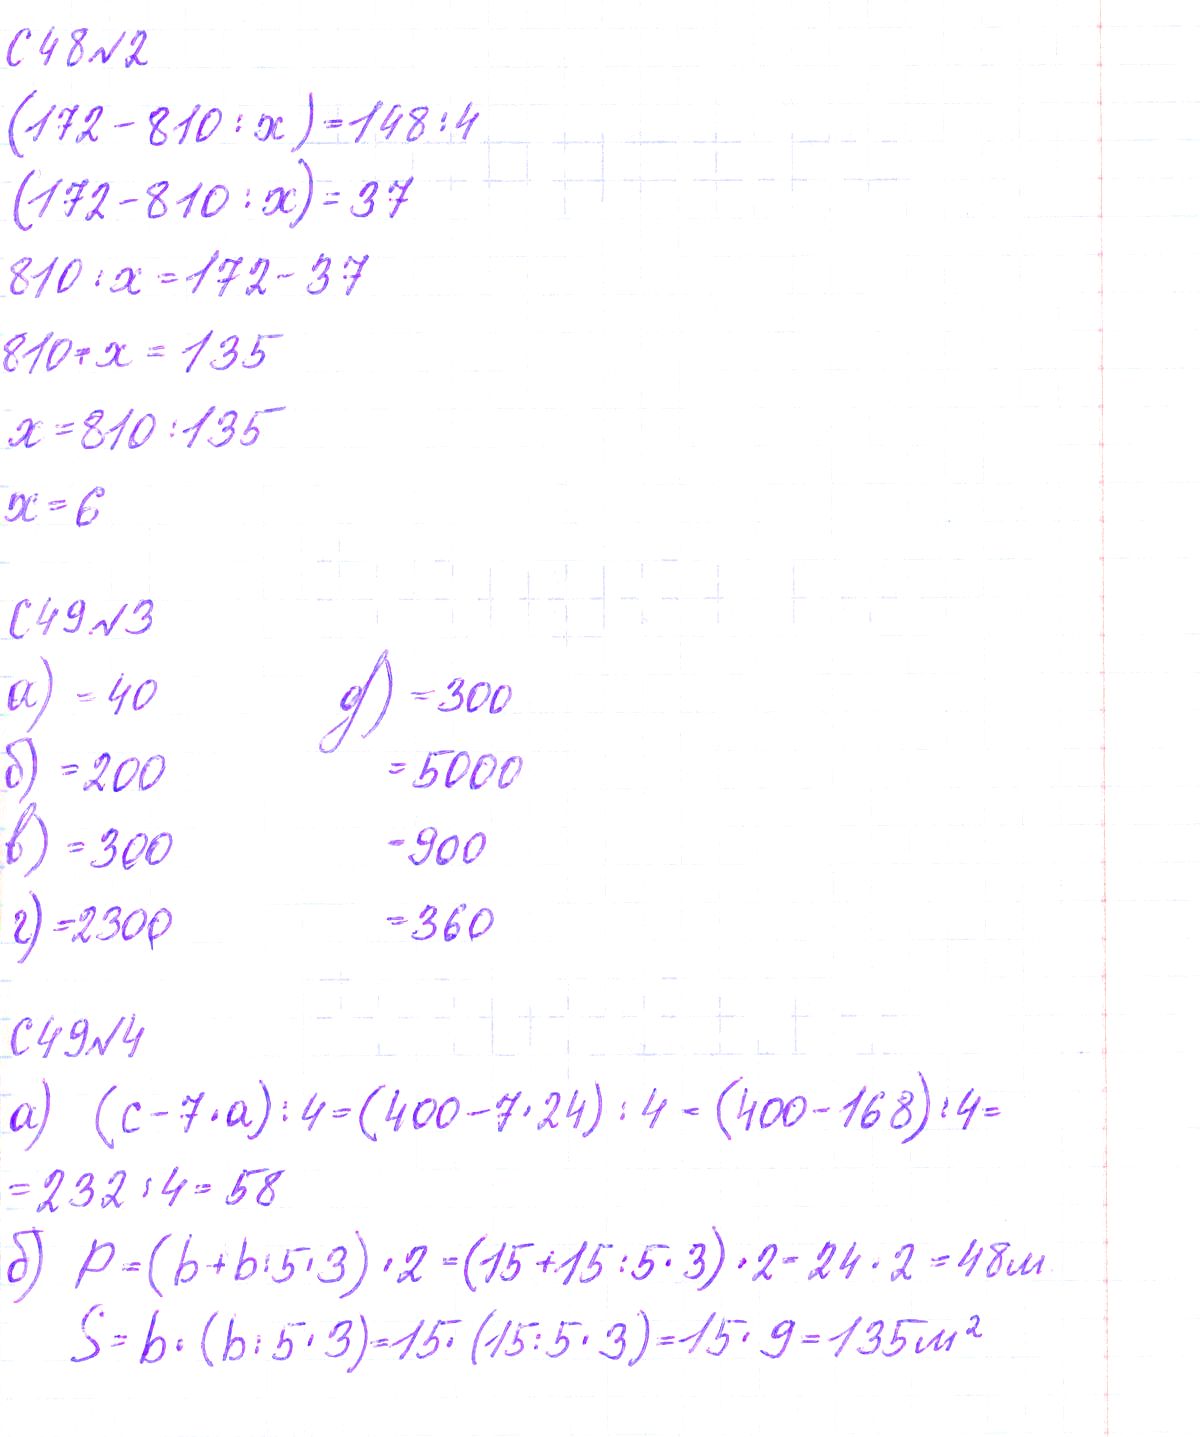 С48№2
(172-810:x)=148:4
(172-810:x)=37
810:x=172-37
810:x=135
x=810:135
x=6
С49№3
а) =40 д) =300
б) =200 =5000
в) =300 -900
г) =2300 =360
С49№4
а) (c-7·a):4=(400-7·24):4=(400-168):4=
=232:4=58
б) P=(b+b:5·3)·2=(15+15:5·3)·2=24·2=48м
S=b·(b:5·3)=15·(15:5·3)=15·9=135м²